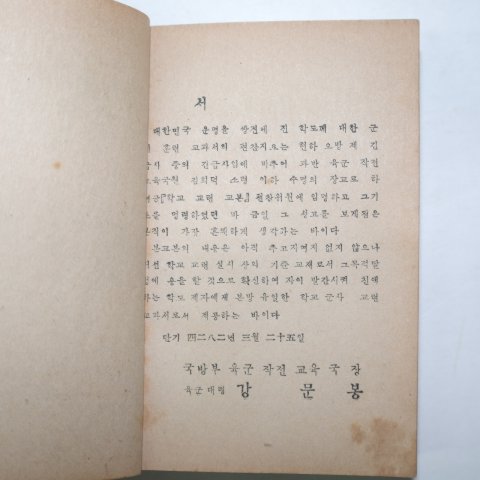 서
대한민국 운명을 쌍견에 진 학도에 대한 군
훈련 교과서의 편찬지요는 현하 으망 제 긴
급사 중의 긴급사임에 비추어 과반 육군 작전
교육국원 김희덕 소령 이하 수명의 장교로 하
여금『학교 교련 교본』편찬위원에 임명하고 그기
초를 명령하였던 바 금일 그 성고를 보게됨은
가장 흔쾌하게 생각하는 바이다
본교본의 내용은 아직 추고지며지 없지 않으나
학교 교련 실시 상의 기준 교재로서 그목적달
성에 용을 할 것으로 확신하며 자이 발간시며 친애
하는 학도 제자에게 본방 유일한 학교 군사 교련
교과서로서 제공하는 바이다
단기 四二八二년 三월 二十五일
국방부 육군 작전 교육 국장
육군대령 강문봉